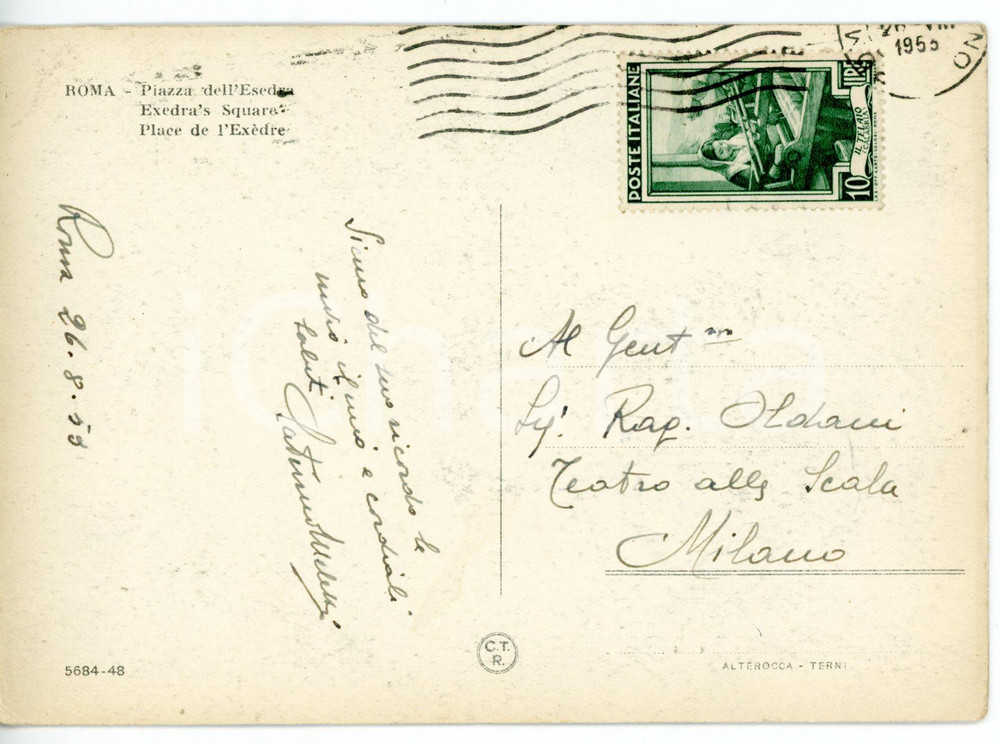 ROMA - Piazza dell'Esedra
Exedra's Square
Place de l'Exèdre
1953
POSTE ITALIANE
LIRE
10
IL TELAIO
CALABRIA
Roma 26.8.53
del suo ricordo le
invio il mio e cordiali
saluti
Al Gent mo
Sig. Rag. Oldani
Teatro alla Scala
Milano
5684-48
C.T.
R.
ALTEROCCA - TERNI
iCharta